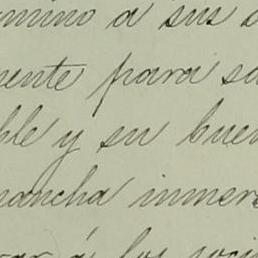 amino á sus
mente para sa
ble y su buen
mancha inmere
á los